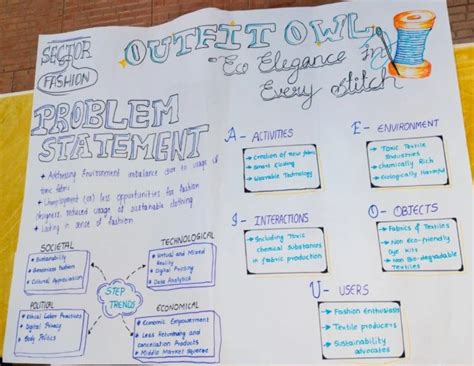 SECTOR
FASHION
OUTFIT OWL
"Eco Elegance in
Every Stitch
PROBLEM
STATEMENT
Addressing Environment imbalance due to usage of
toxic fabric
Unemployment (or) less opportunities for fashion
designers, reduced usage of sustainable clothing
Lacking in sense of fashion
SOCIETAL
Sustainability
Awareness
Cultural Appreciation
TECHNOLOGICAL
Virtual and Mixed
Reality
Digital Printing
Data Analytics
STEP
TRENDS
POLITICAL
Ethical Labor Practices
Digital Privacy
Body Politics
ECONOMICAL
Economic Empowerment
Less Returning and
Cancellation Products
Middle Market Squeeze
A - ACTIVITIES
Creation of new fabric
Smart Clothing
Wearable Technology
E - ENVIRONMENT
Toxic Textile
Industries
Chemically Rich
Ecologically Harmful
I - INTERACTIONS
Including Toxic
chemical Substances
in fabric production
O - OBJECTS
Fabrics & Textiles
Non Eco-friendly
Dye Kits
Non Bio-degradable
Textiles
U - USERS
Fashion Enthusiasts
Textile producers
Sustainability
advocates